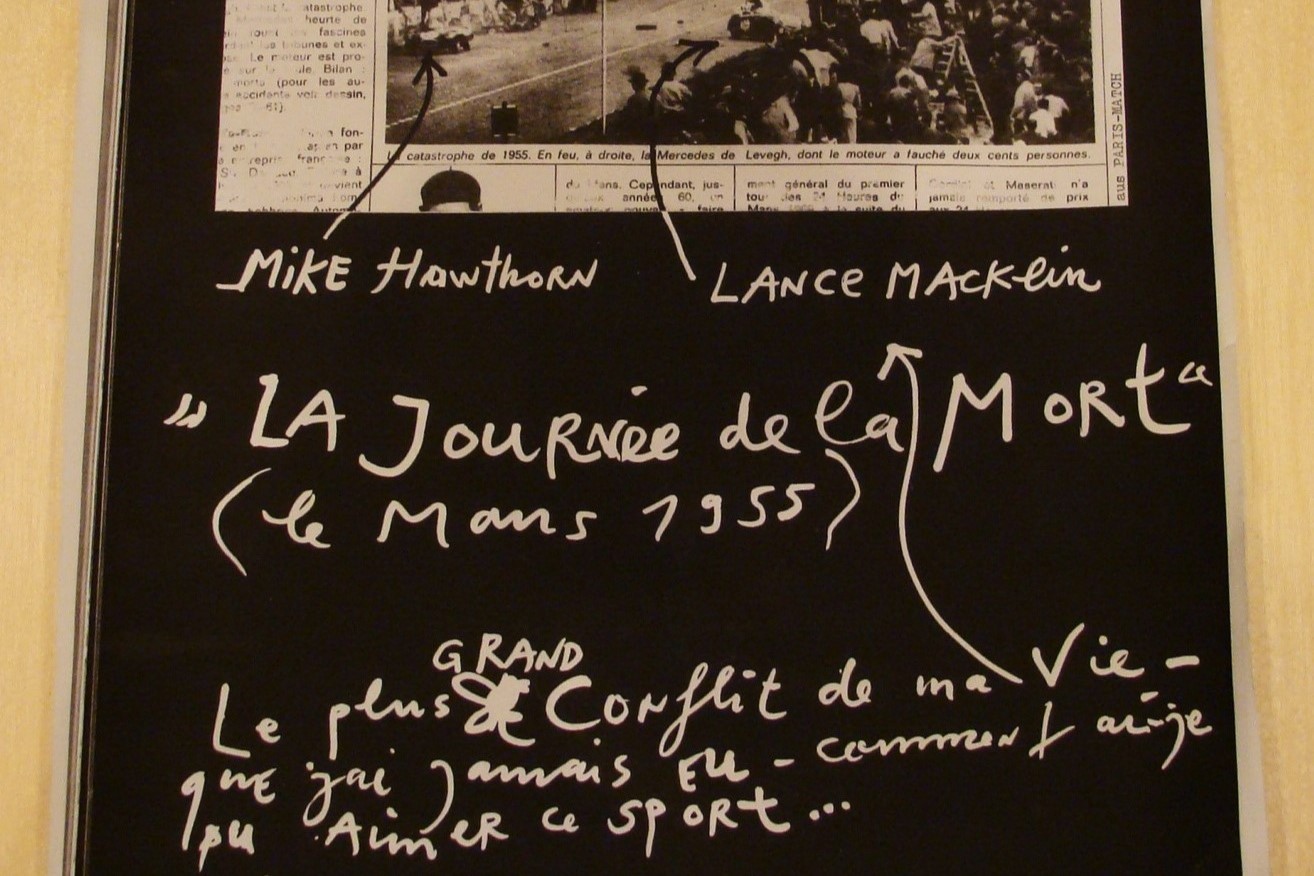 catastrophe.
heurte de
fascines
tribunes et ex-
Le moteur est pro-
sur la Bilan :
morts (pour les au-
accidents voir dessin,
61).
fon-
en par
à
La catastrophe de 1955. En feu, à droite, la Mercedes de Levegh, dont le moteur a fauché deux cents personnes.
du Mans. Cependant, jus-
année 60, un
faire
ment général du premier
tour des 24 Heures du
Mans à la suite du
et Maserati n'a
jamais remporté de prix
aux 24
aus PARIS-MATCH
MIKE HAWTHORN
LANCE MACKLIN
" LA JOURNÉE de la MORT "
(le Mans 1955)
GRAND
Le plus Conflit de ma Vie -
que j'ai jamais EU - comment ai-je
pu Aimer ce SPORT...